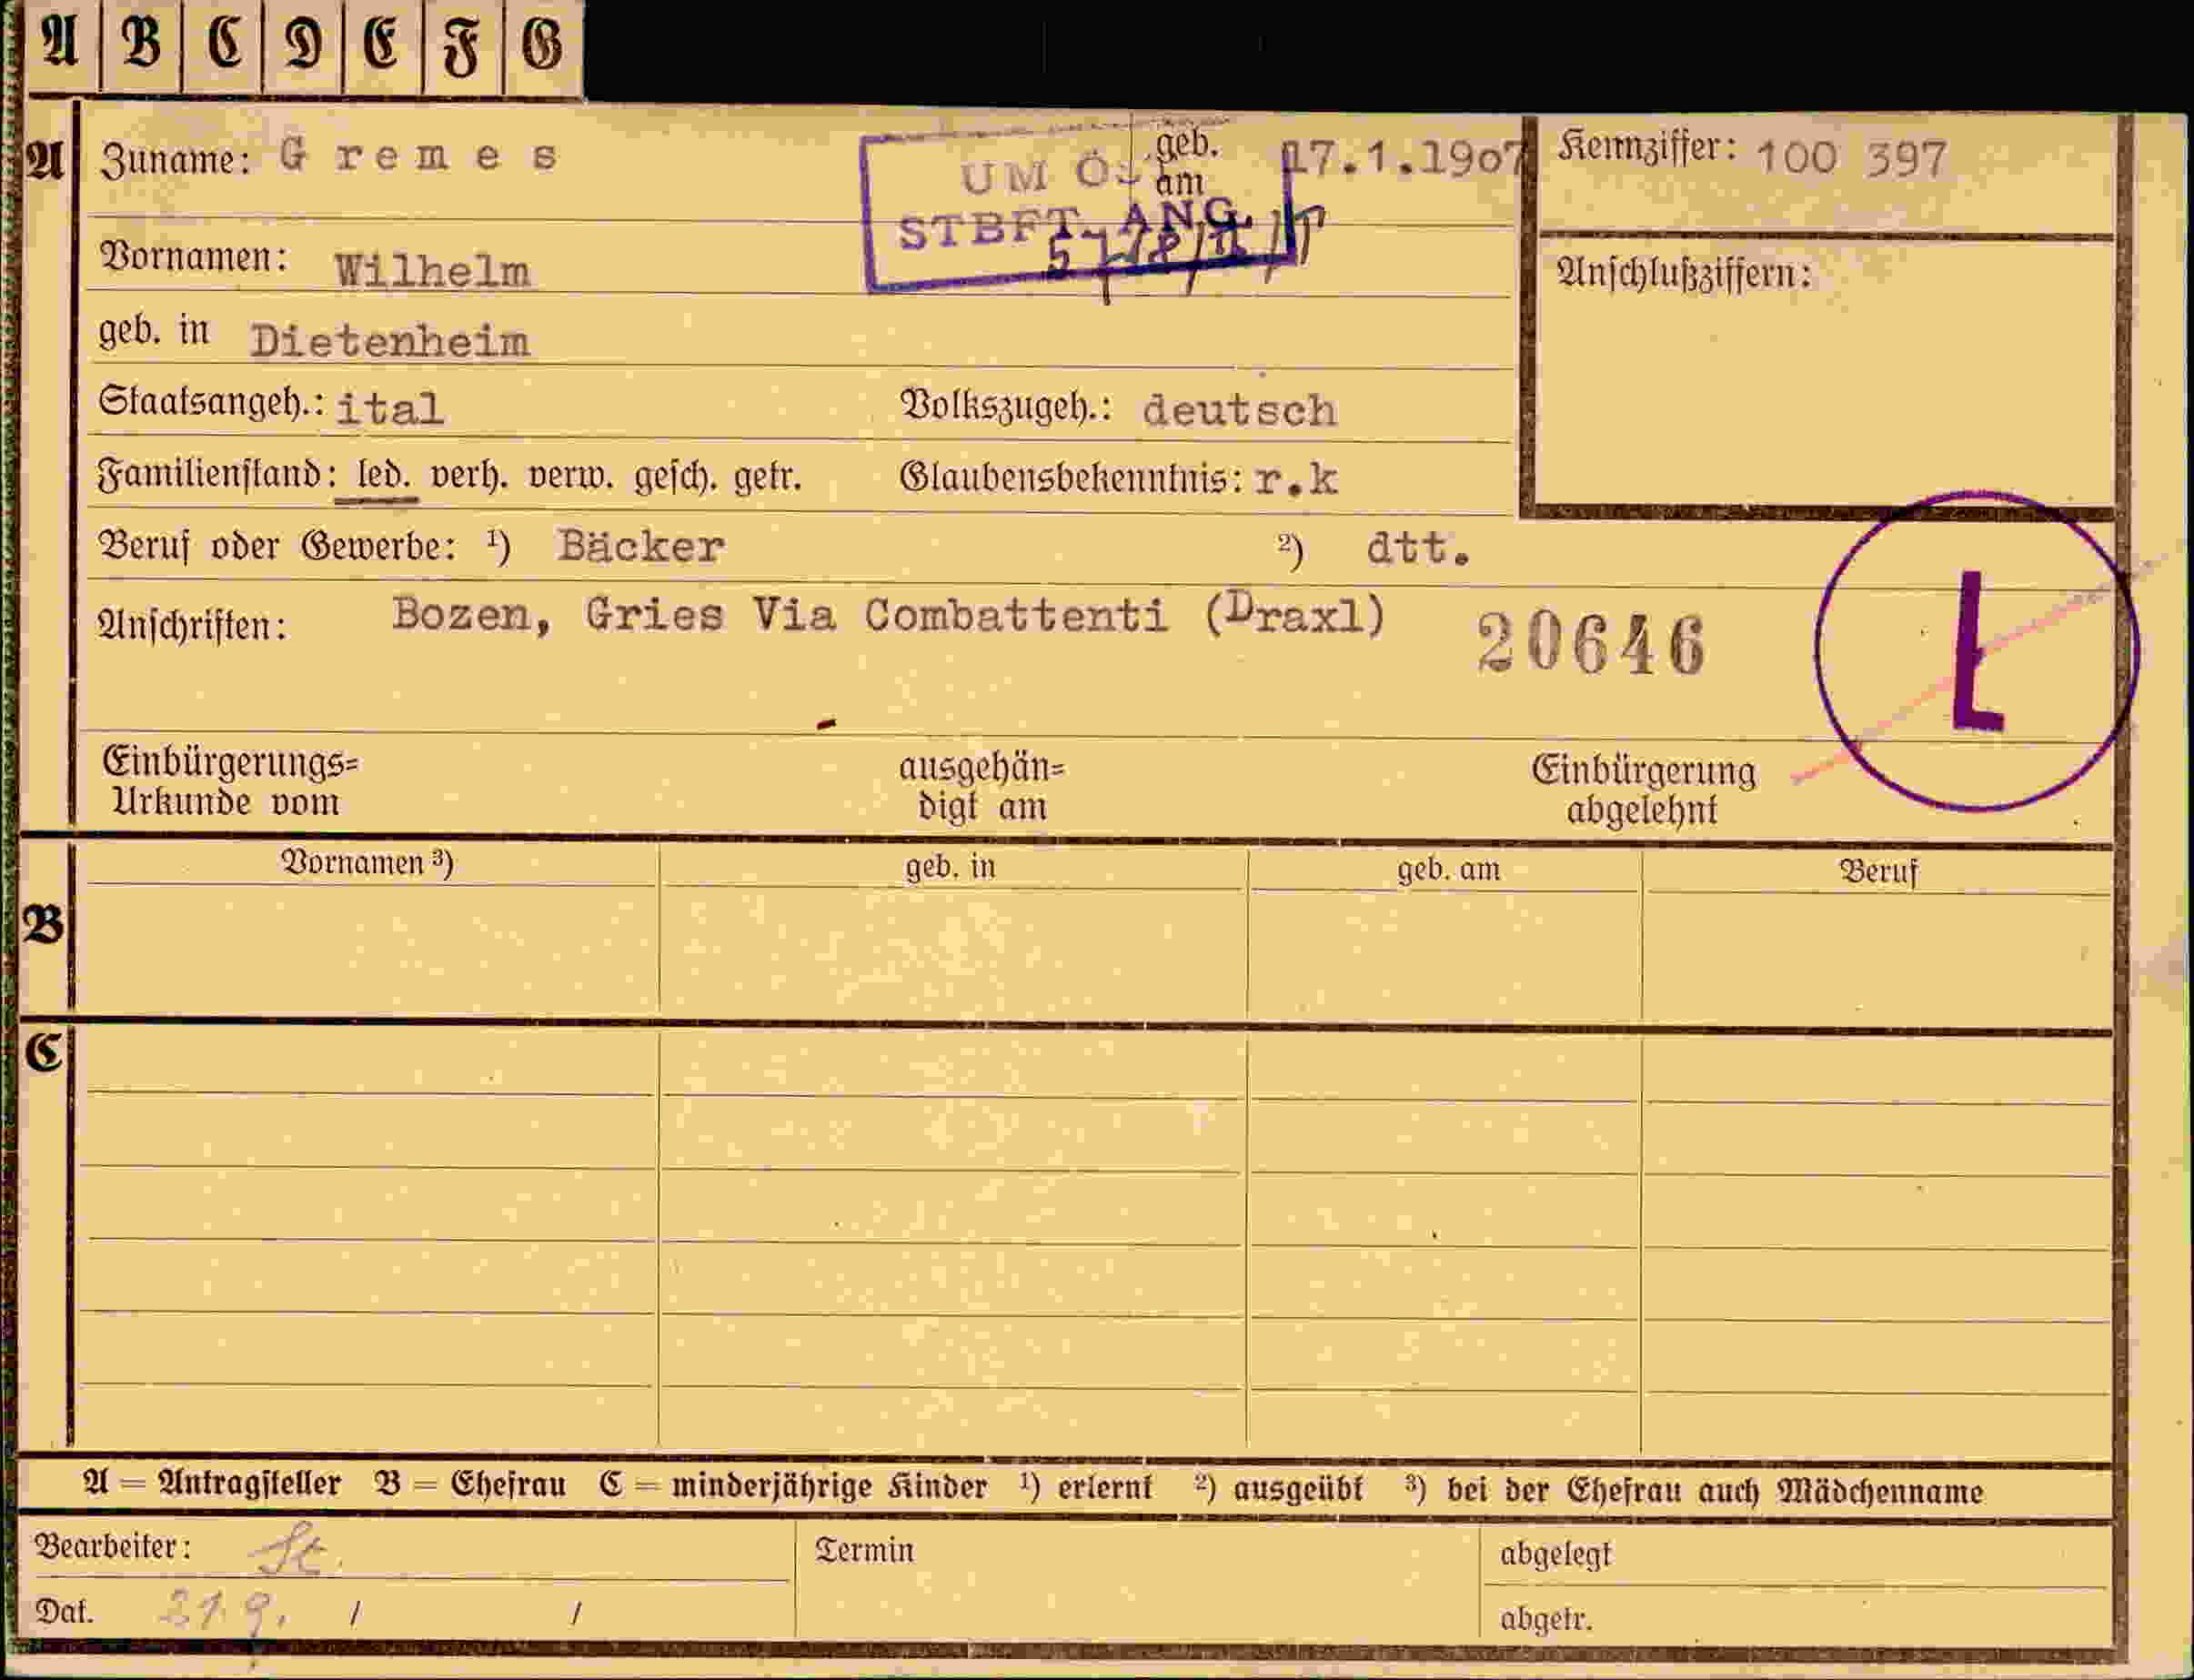 A B C D E F G
A Zuname: Gremes geb. am 17.1.1907 Kennziffer: 100 397
UM Ö
STBFT. ANG.
Vornamen: Wilhelm Anschlußziffern:
geb. in Dietenheim
Staatsangeh.: ital Volkszugeh.: deutsch
Familienstand: led. verh. verw. gesch. getr. Glaubensbekenntnis: r.k
Beruf oder Gewerbe: ¹) Bäcker ²) dtt.
Anschriften: Bozen, Gries Via Combattenti (Draxl) 20646
L
Einbürgerungs= ausgehän= Einbürgerung
Urkunde vom digt am abgelehnt
Vornamen ³) geb. in geb. am Beruf
B
C
A = Antragsteller B = Ehefrau C = minderjährige Kinder ¹) erlernt ²) ausgeübt ³) bei der Ehefrau auch Mädchenname
Bearbeiter: St. Termin abgelegt
Dat. 21.9. / / abgetr.